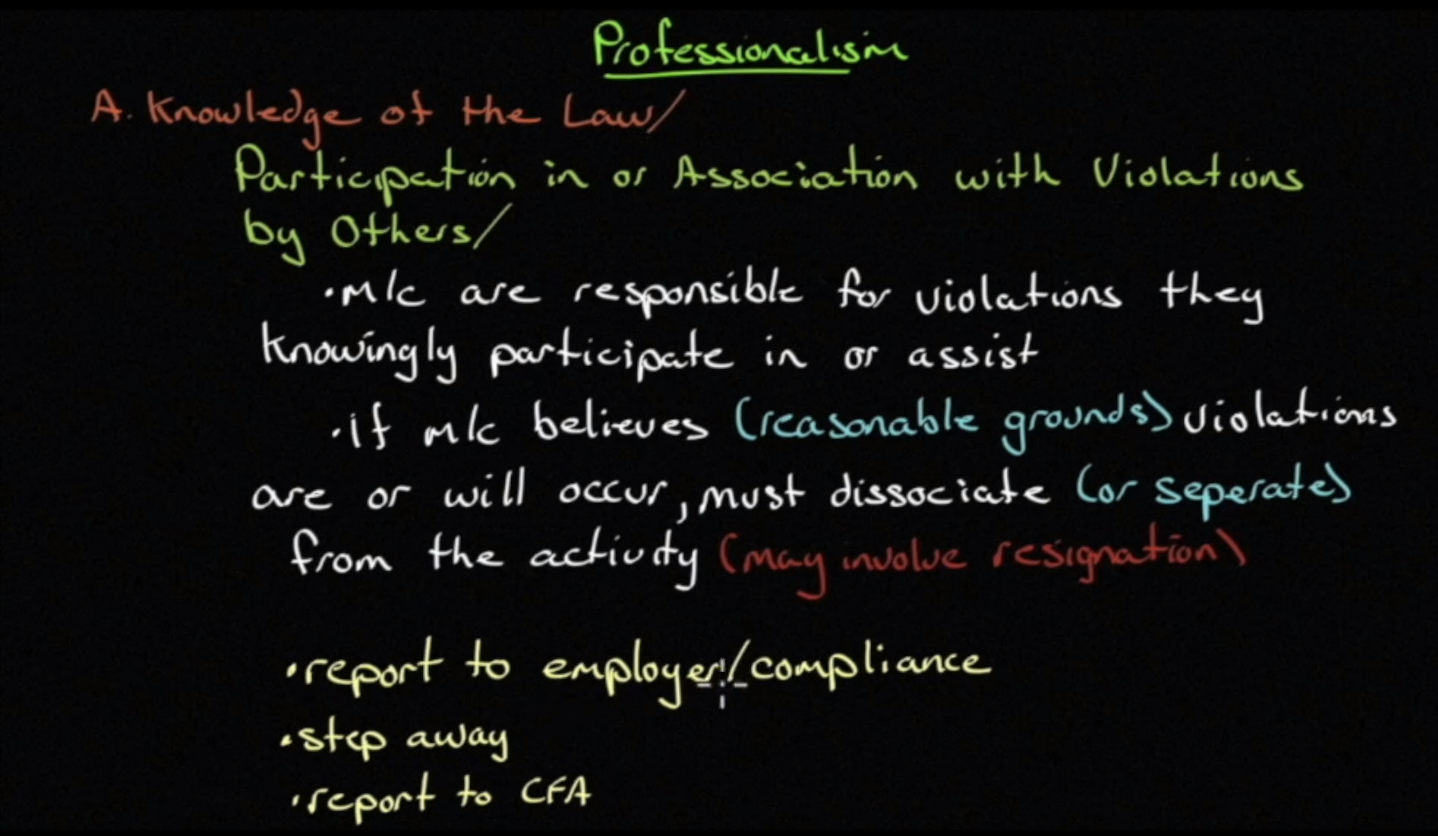 Professionalism
A. Knowledge of the Law/
Participation in or Association with Violations
by Others/
•M/C are responsible for violations they
knowingly participate in or assist
•if M/C believes (reasonable grounds) violations
are or will occur, must dissociate (or seperate)
from the activity (may involve resignation)
•report to employer/compliance
•step away
•report to CFA